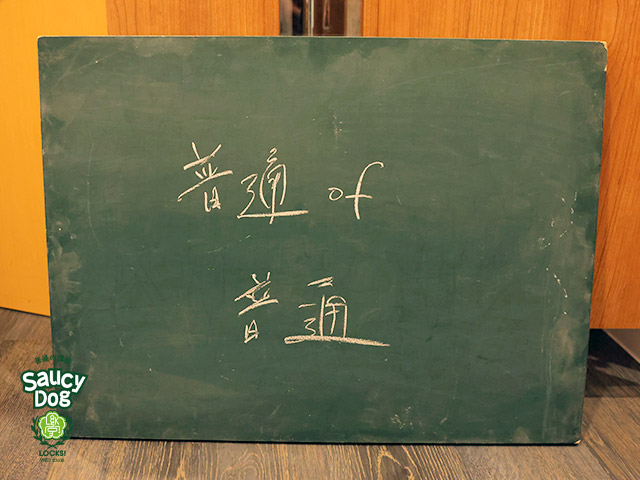 普通 of
普通
Saucy
Dog
LOCKS!